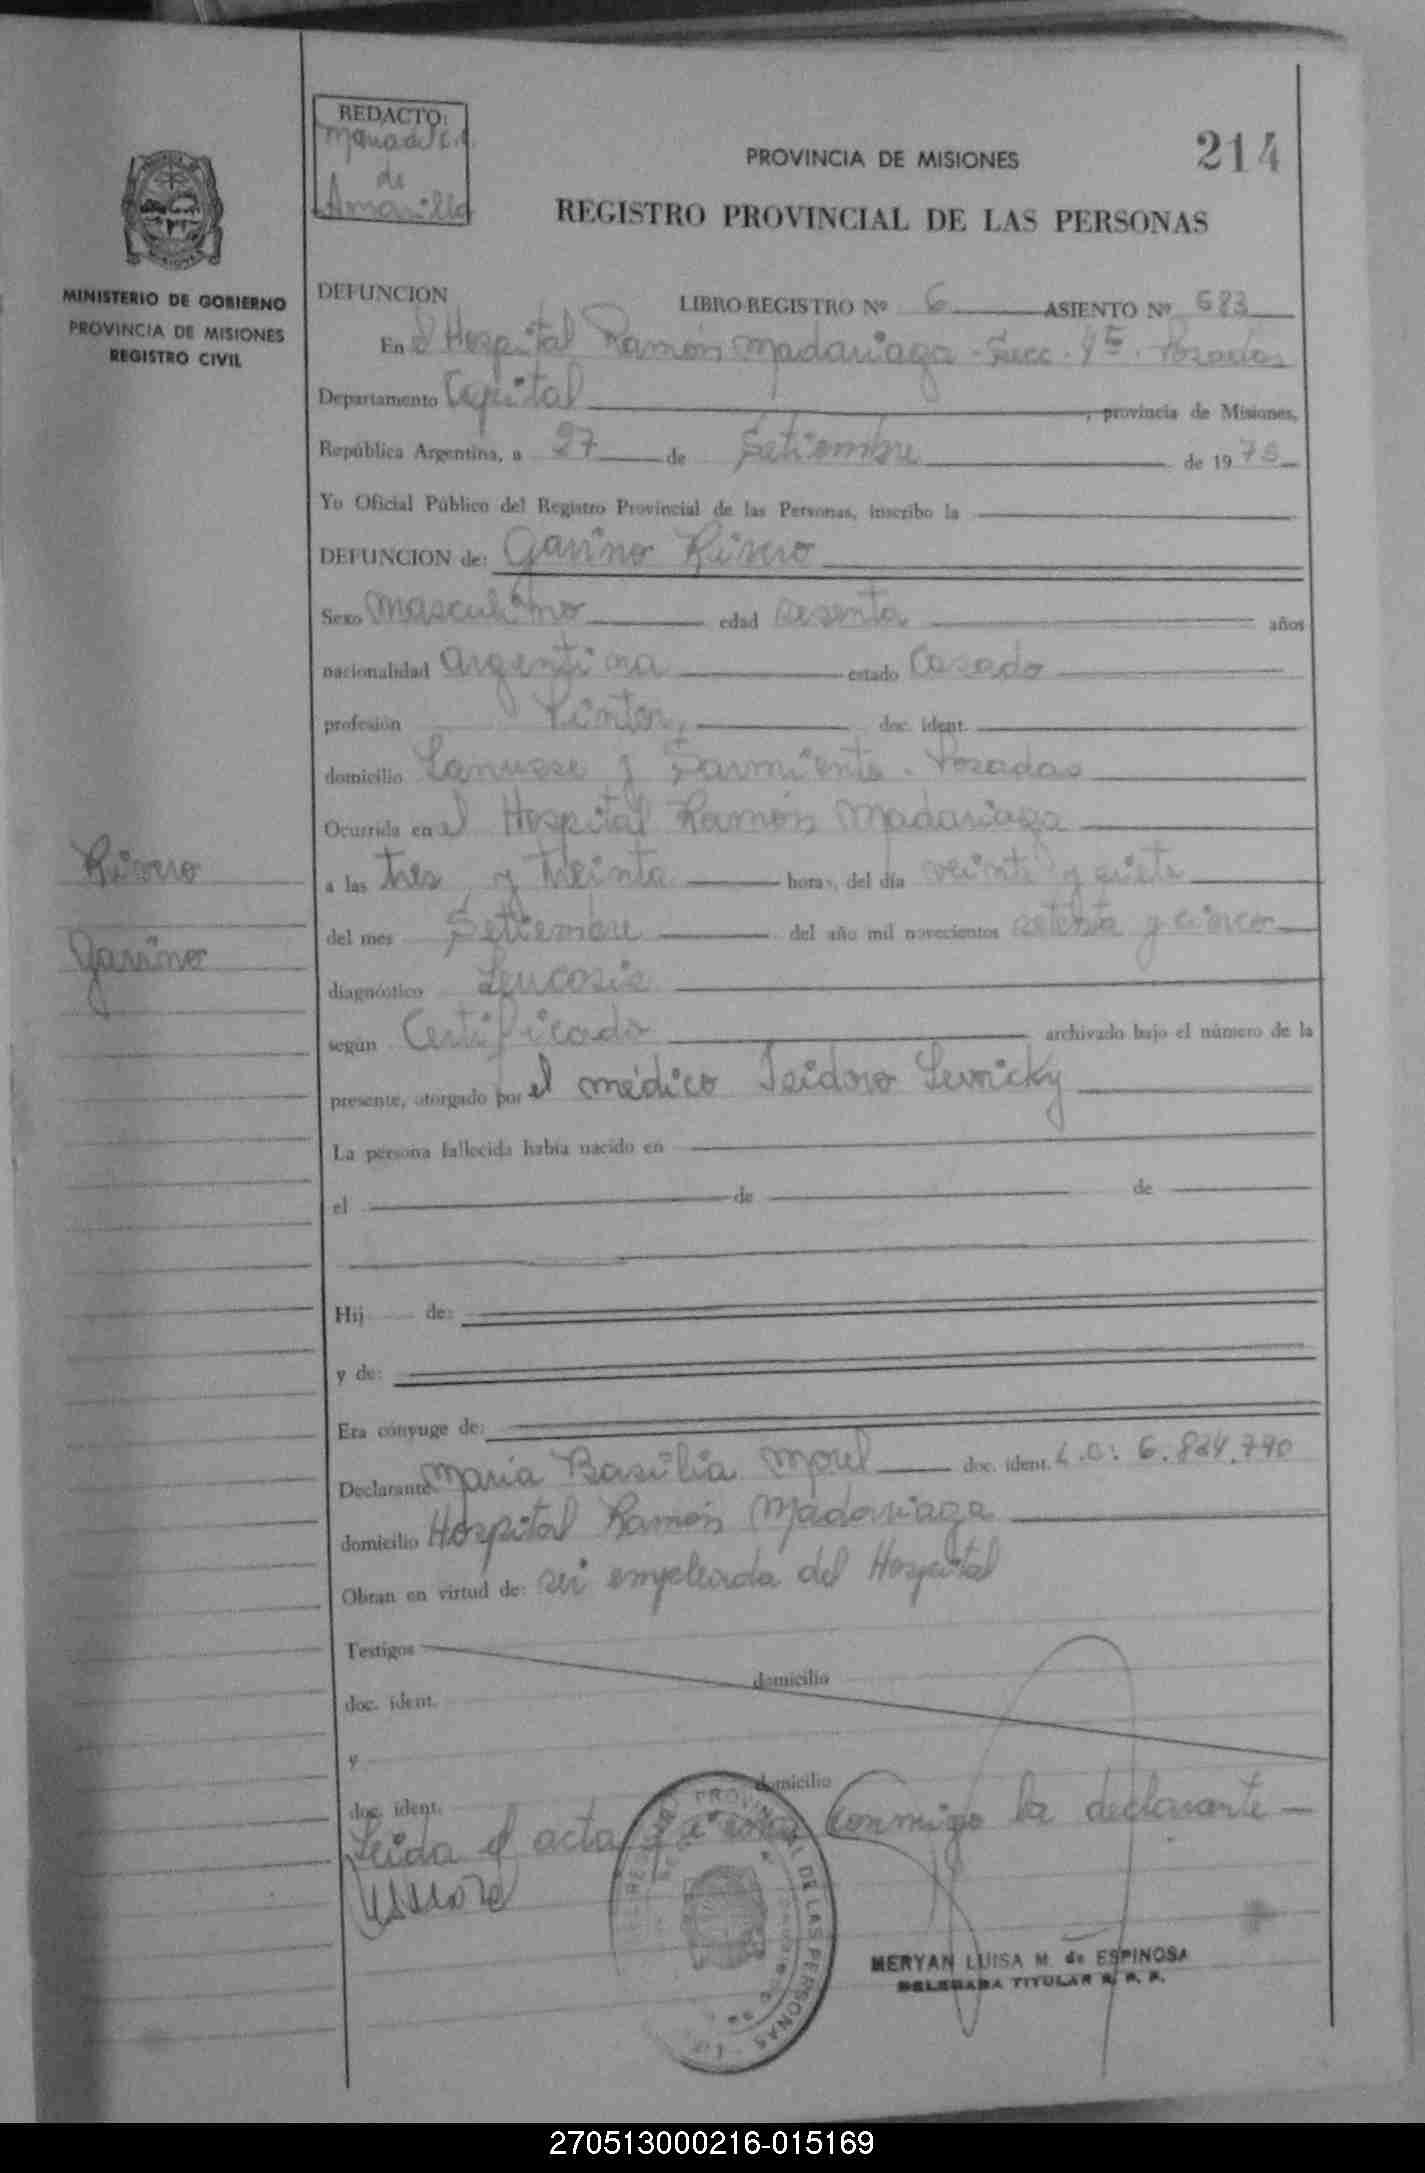 REDACTO:
Maria del C. A.
de
Amarilla
PROVINCIA DE MISIONES
214
REGISTRO PROVINCIAL DE LAS PERSONAS
MINISTERIO DE GOBIERNO
PROVINCIA DE MISIONES
REGISTRO CIVIL
DEFUNCION LIBRO-REGISTRO Nº 6 ASIENTO Nº 683
En el Hospital Ramón Madariaga - Secc. Posadas
Departamento Capital, provincia de Misiones,
República Argentina, a 27 de Setiembre de 1975
Yo Oficial Público del Registro Provincial de las Personas, inscribo la
DEFUNCION de: Gavino Rivero
Sexo Masculino edad sesenta años
nacionalidad argentina estado Casado
profesión Pintor, doc. ident.
domicilio Lanusse y Sarmiento - Posadas
Ocurrida en el Hospital Ramón Madariaga
a las tres y treinta horas, del día veinti y siete
del mes Setiembre del año mil novecientos setenta y cinco
diagnóstico Leucosis
según Certificado archivado bajo el número de la
presente, otorgado por el médico Isidoro Levricky
La persona fallecida había nacido en
el de de
Hij de:
y de:
Era cónyuge de:
Declarante Maria Basilia Morel doc. ident. L.C: 6.824.790
domicilio Hospital Ramón Madariaga
Obran en virtud de: ser empleada del Hospital
Testigos
domicilio
doc. ident.
y
domicilio
doc. ident.
Leida el acta conmigo la declarante
Rivero
Gavino
REGISTRO PROVINCIAL DE LAS PERSONAS
MERYAN LUISA M. de ESPINOSA
DELEGADA TITULAR R. P. P.
270513000216-015169